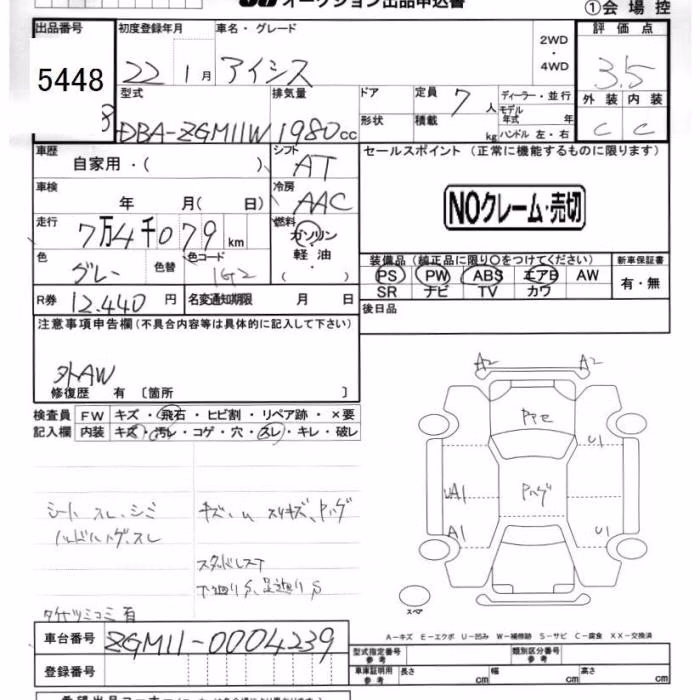 オークション出品申込書
①会場控
出品番号 初度登録年月 車名・グレード 2WD・4WD 評価点
5448 22 1月 アイシス 3.5
型式 排気量 ドア 定員 7人 ディーラー・並行 外装 内装
8 DBA-ZGM11W 1980cc 形状 積載 kg モデル年式 年 ハンドル 左・右 C C
車歴 シフト セールスポイント (正常に機能するものに限ります)
自家用・( ) AT
車検 冷房
年 月( 日) AAC
NOクレーム・売切
走行 燃料
7万4千079km ガソリン・軽油・( )
色 色替 色コード 装備品 (純正品に限り○をつけてください) 新車保証書
グレー 1G2 PS PW ABS エアB AW 有・無
SR ナビ TV カワ
R券 12,440円 名変通知期限 月 日 後日品
注意事項申告欄(不具合内容等は具体的に記入して下さい)
外AW
修復歴 有 〔箇所 〕
検査員 FW キズ・飛石・ヒビ割・リペア跡・×要
記入欄 内装 キズ・汚レ・コゲ・穴・スレ・キレ・破レ
シート スレ、シミ
スタッドレスT
下廻りS、足廻りS
タイヤツミコミ有
A2 A2
PPセ
U1
UA1 Pハゲ
A1 U1
スペア
A-キズ E-エクボ U-凹み W-補修跡 S-サビ C-腐食 XX-交換済
車台番号 ZGM11-0004239
型式指定番号 参考 類別区分番号 参考
登録番号 車庫証明用 参考 長さ cm 幅 cm 高さ cm